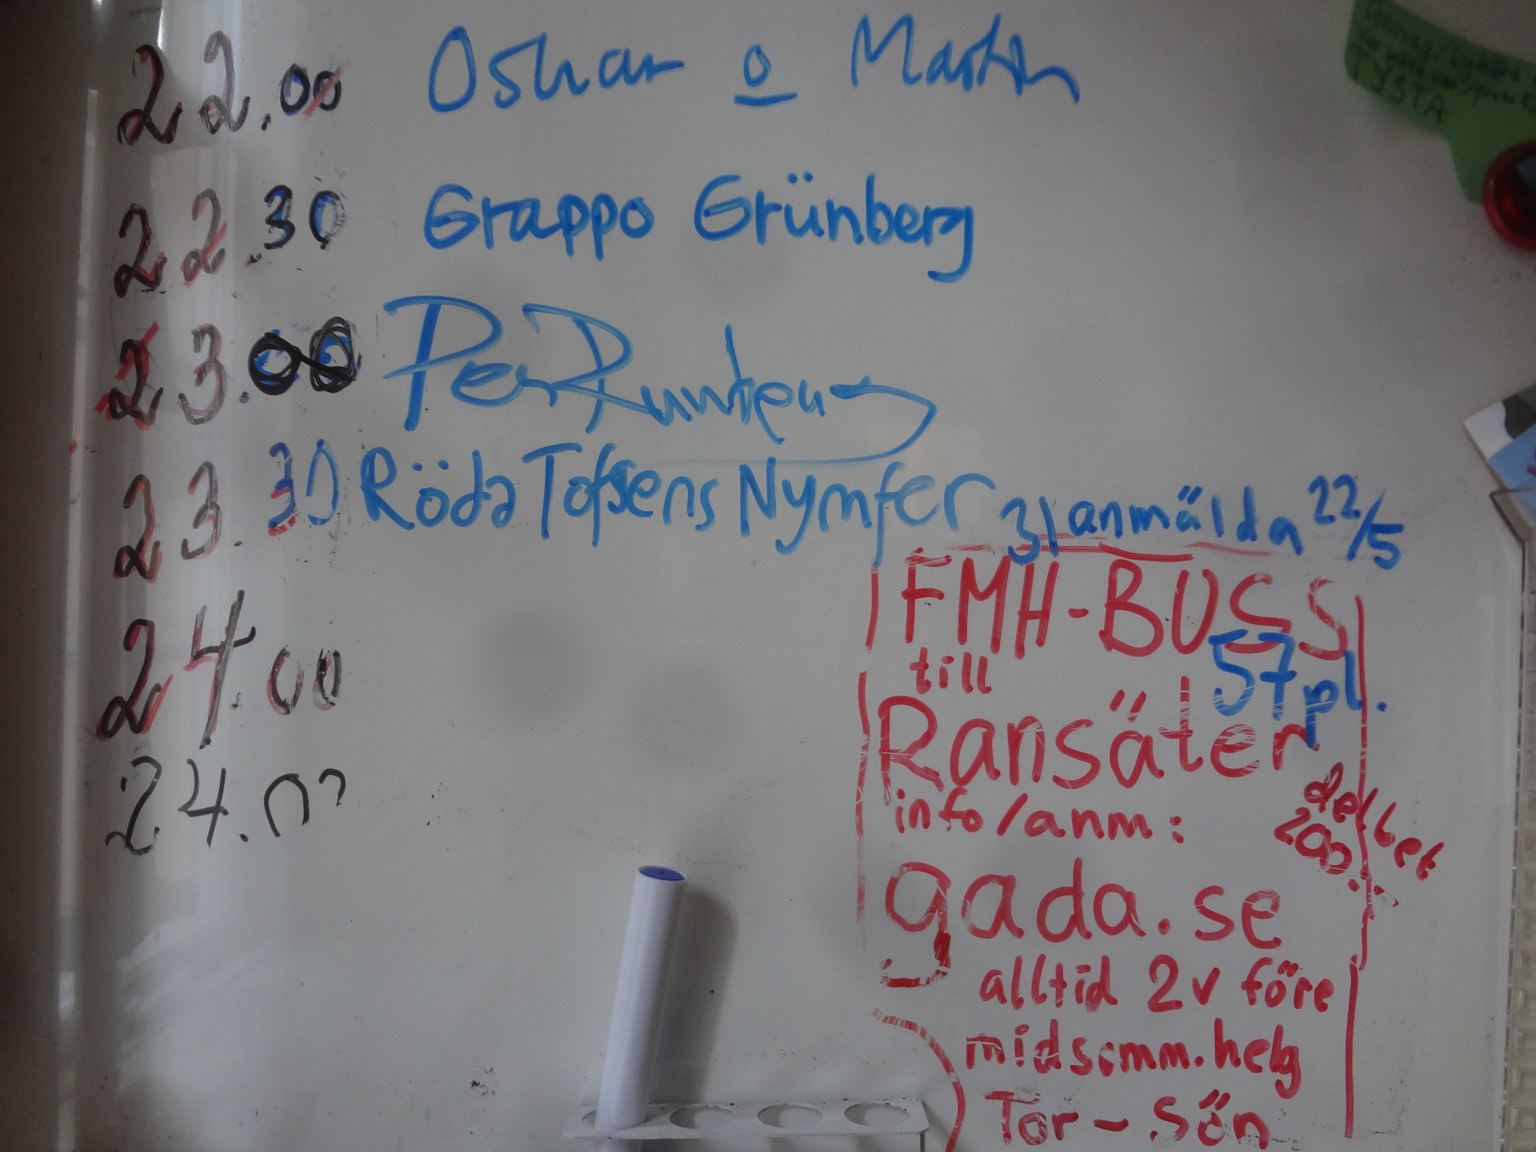 22.00 Oskar o Martin
22.30 Grappo Grünberg
23.00 Per Runberg
23.30 Röda Tofsens Nymfer
31 anmälda 22/5
24.00
24.00
FMH-BUSS
57 pl.
till
Ransäter
info/anm:
delbet
200:-
gada.se
alltid 2v före
midsomm.helg
Tor - Sön
TYSTA